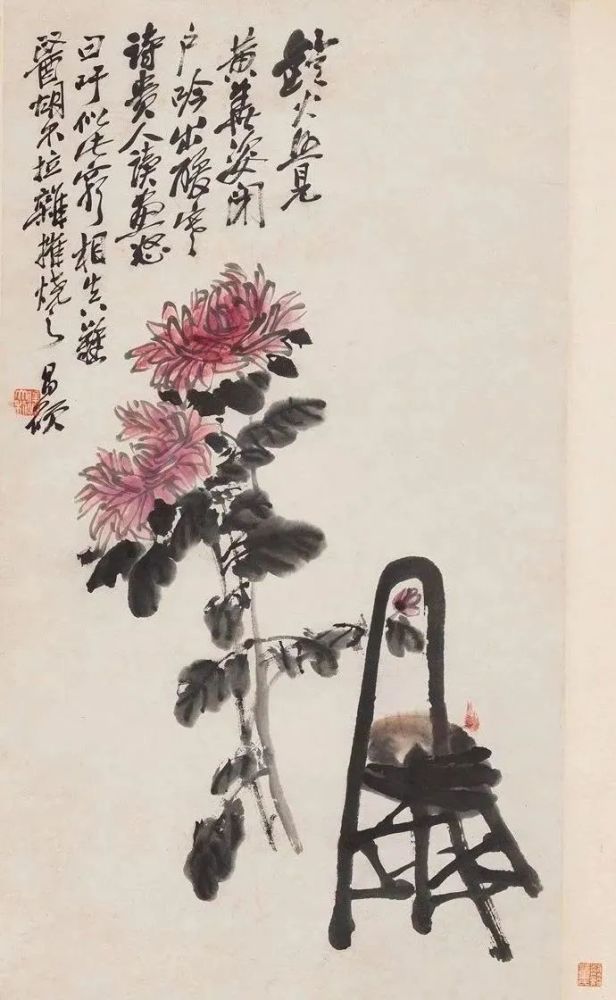 鐙火照見
黄華姿閉
户吟出酸寒
詩貴人讀畫怒
曰吁似此窮相真難
醫胡不拉雜摧燒之 昌碩